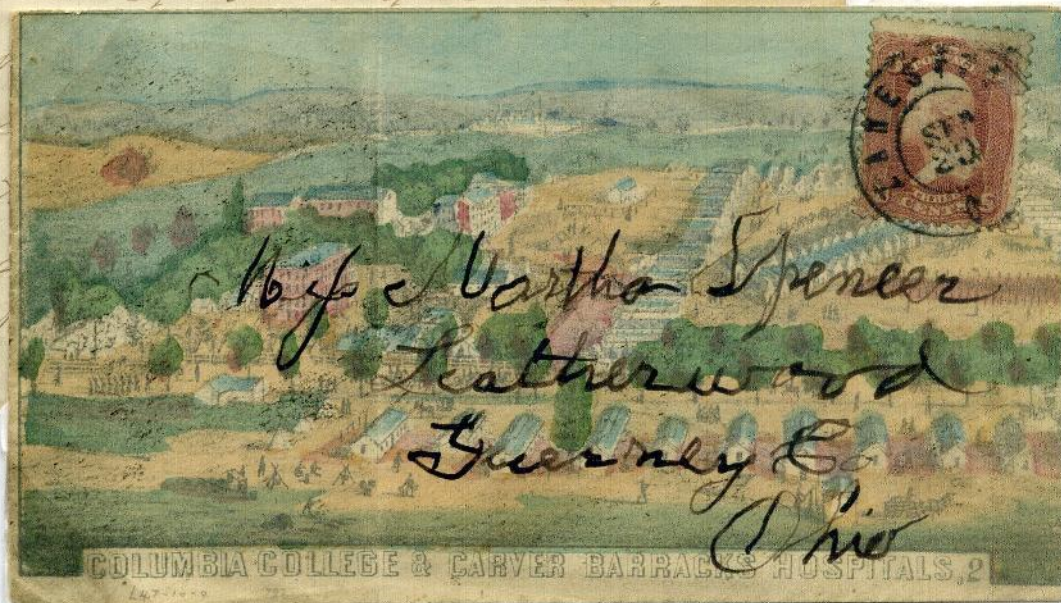 ZANESV
SEP
CENTS
Miss Martha Spencer
Leatherwood
Guernsey Co
Ohio
COLUMBIA COLLEGE & CARVER BARRACKS HOSPITALS, 2